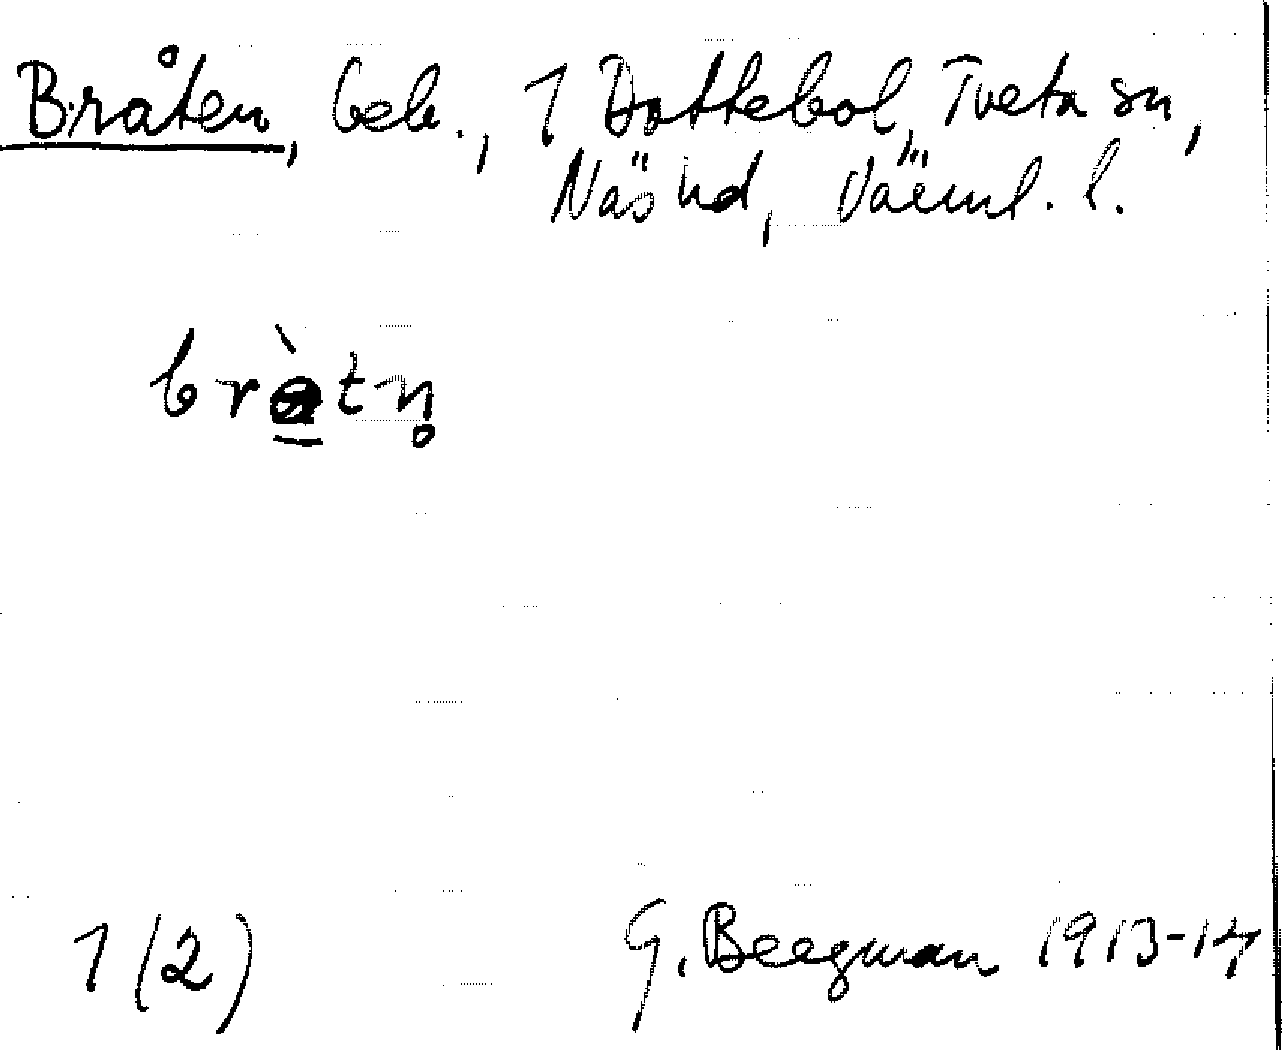 Bråten, beb., 1 Dottebol, Tveta sn,
Näs hd, Värml. l.
brò̱tn̥
1 (2) G. Bergman 1913-14